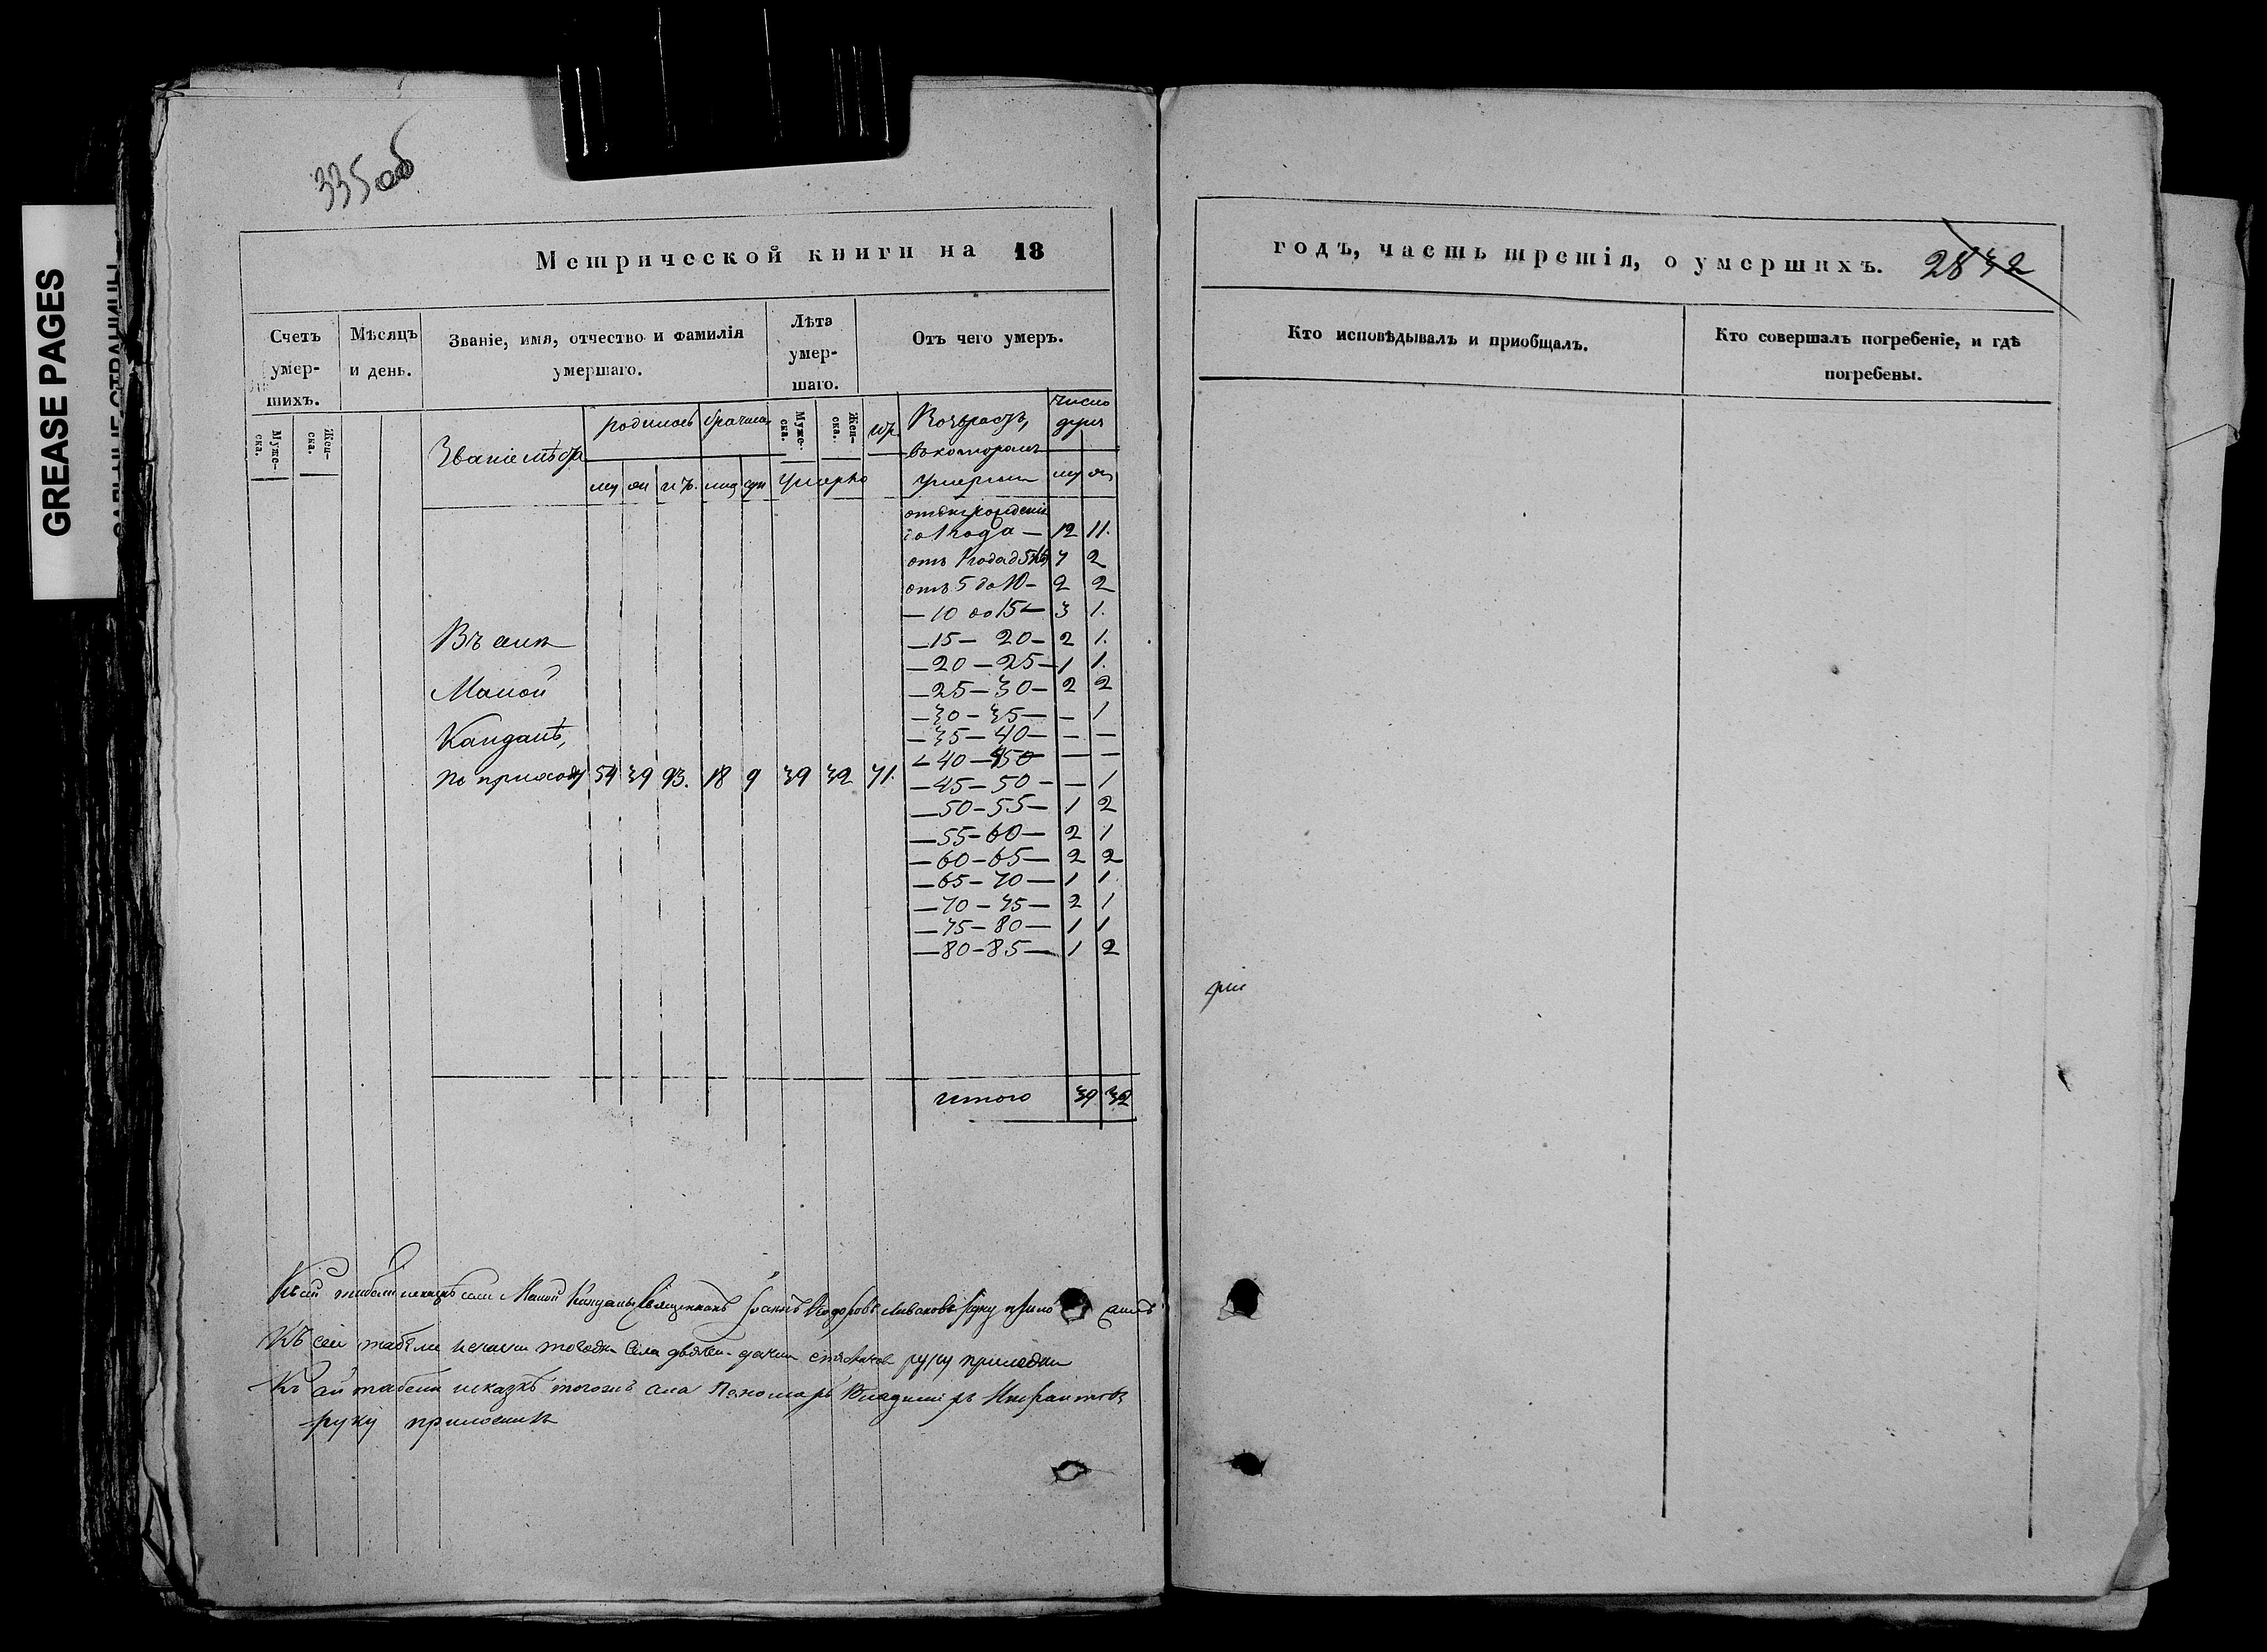 GREASE PAGES
335 об
Метрической книги на 18
Счетъ умерших.
Мѣсяцъ и день.
Званіе, имя, отчество и фамилія умершаго.
Лѣта умершаго.
Отъ чего умеръ.
Муже-ска.
Жен-ска.
Званіе мѣста
родилось
Муже-ска.
Жен-ска.
умерло
Возрастъ,
въ которомъ
умерли
число
душъ
отъ рожденія
до 1 года — 12 11.
отъ 1 года до 5 7 2
отъ 5 до 10 — 2 2
— 10 до 15 — 3 1.
— 15 — 20 — 2 1.
— 20 — 25 — 1 1.
— 25 — 30 — 2 2
— 30 — 35 — — 1
— 35 — 40 — — —
— 40 — 450 — —
— 45 — 50 — — 1
— 50 — 55 — 1 2
— 55 — 60 — 2 1
— 60 — 65 — 2 2
— 65 — 70 — 1 1
— 70 — 75 — 2 1
— 75 — 80 — 1 1
— 80 — 85 — 1 2
Въ селѣ
Малой
Кандалѣ,
по приходу 54 39 93. 18 9 39 32 71.
итого 39 32
Къ сей табели села Малой Кандалы Священникъ Іоаннъ руку
Къ сей табели села руку приложилъ
Къ сей табели тогожъ села Пономарь Владиміръ
руку приложилъ
годъ, часть третія, о умершихъ.
2832
Кто исповѣдывалъ и приобщалъ.
Кто совершалъ погребеніе, и гдѣ погребены.